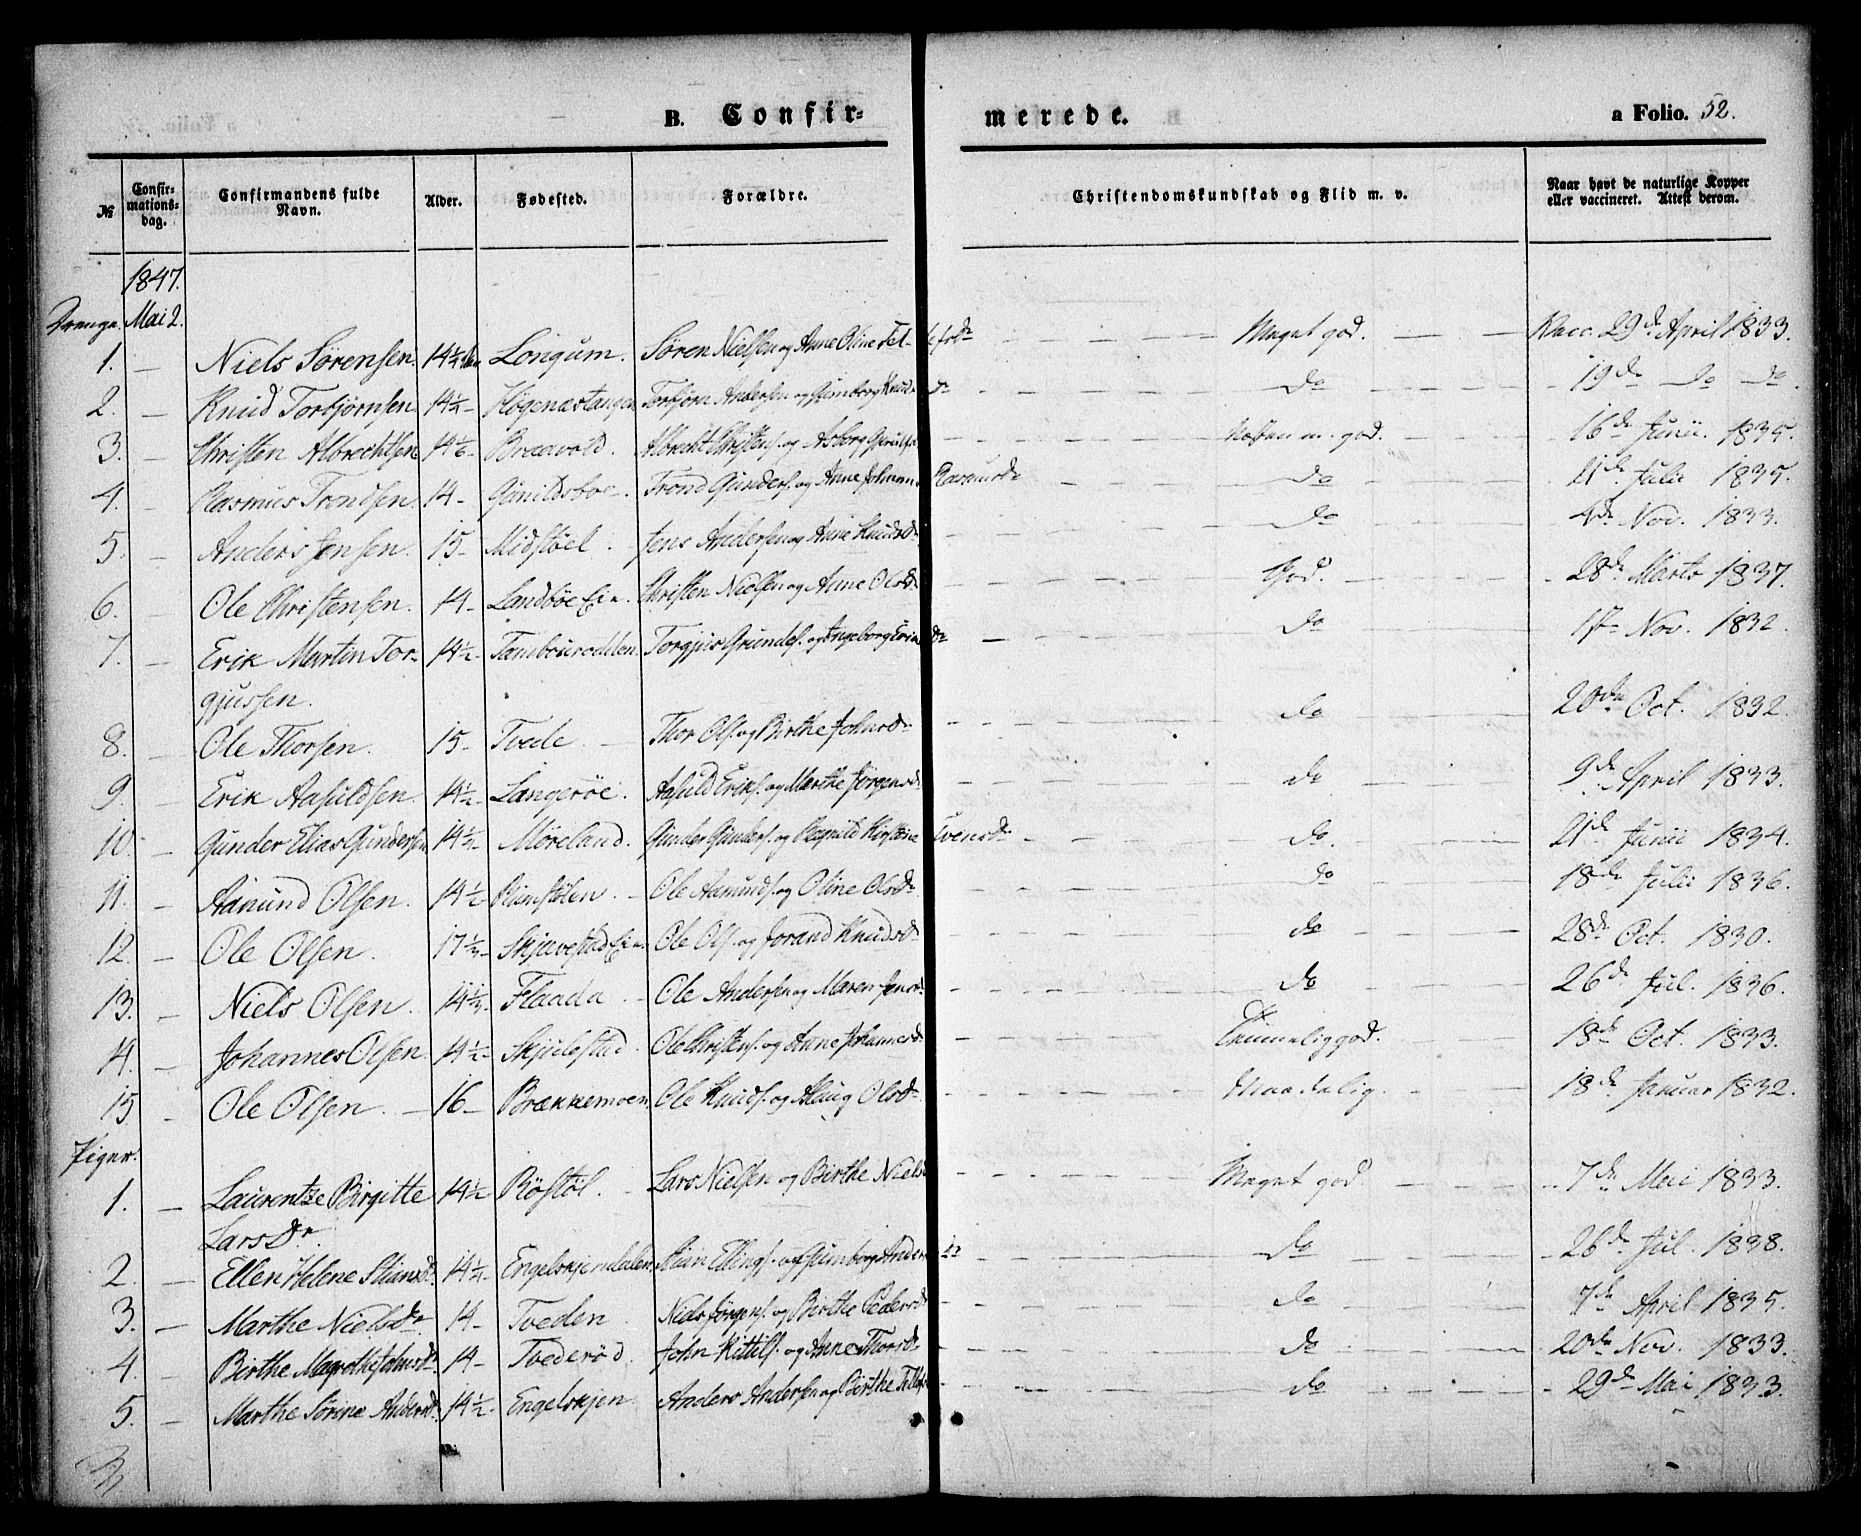 B. Confir-
merede.
a Folio. 52.
№ Confir-mations-dag. Confirmandens fulde Navn. Alder. Fødested. Forældre. Christendomskundskab og Flid m. v. Naar havt de naturlige Kopper eller vaccineret. Attest derom.
1847.
Drenge. Mai 2.
1. — Niels Sörensen. 14 1/4 Longum. Sören Nielsen og Anne Oline Meget god. Vacc. 29de April 1833.
2. — Knud Torbjörnsen 14 1/4 Högenæstangen Torbjörn Andersen og Gunborg Knudsdr do 19de do do.
3. — Christen Albrechtsen 14 1/6 Braavold. Albrecht Christens. og Asborg Næsten m. god. 16de Junii. 1835.
4. — Rasmus Trondsen. 14 Gunildsboe. Trond Gunders. og Anne Johanne Rasmusdr do 21de Julii 1835.
5. — Anders Jensen. 15 Midstöel. Jens Andersen og Anne Knudsdr do 4de Nov. 1833.
6. — Ole Christensen. 14 Landböe Ei. Christen Nielsen og Anne Olsdr God. 28de Marts 1837.
7. — Erik Martin Tor- 14 1/2 Tambourodden Torgjus og Ingeborg do 1ste Nov. 1832.
gjussen.
8. — Ole Thorsen. 15 Tvede. Thor Ols. og Birthe Johnsdr do 20de Oct. 1832.
9. — Erik Aasuldsen. 14 1/2 Langeröe. Aasuld Eriks. og Marthe Jörgensd. do 9de April 1833.
10. — Gunder Elias Gundersen 14 1/4 Möreland. Gunder Gunders. og Ragnild Kirstine Evensdr do. 21de Junii 1834.
11. — Aanund Olsen. 14 1/2 Rimstölen. Ole Aanunds. og Oline Olsdr do 18de Julii 1836.
12. — Ole Olsen. 17 1/2 Skjævestad Ei. Ole Ols. og Jorand Knudsdr do 28de Oct. 1830.
13. — Niels Olsen. 14 1/2 Flaada. Ole Andersen og Maren Jensdr do 26de Jul. 1836.
14. — Johannes Olsen. 14 1/2 Skjulestad. Ole Christens. og Anne Johannesdr Temmelig god. 18de Oct. 1833.
15. — Ole Olsen. 16 Brækkemoen Ole Knuds. og Aslaug Olsdr Maadelig. 18de Januar 1832.
Piger.
1. — Laurentze Birgitte 14 1/2 Röstöl. Lars Nielsen og Birthe Nielsd Meget god. 7de Mai 1833.
Larsdr.
2. — Ellen Helene Stiansd. 14 1/4 Engelskjendalen Stian Ellings. og Gunborg Andersdr do 26de Jul. 1838.
3. — Marthe Nielsdr 14 Tveden Niels Jörgens. og Birthe Pedersdr do 7de April 1835.
4. — Birthe Magrethe Johnsdr 14 Tvederöd. John Kittils. og Anne Thorsdr do 20de Nov. 1833.
5. — Marthe Sörine Andersd. 14 1/2 Engelskjen Anders Andersen og Birthe do 29de Mai 1833.